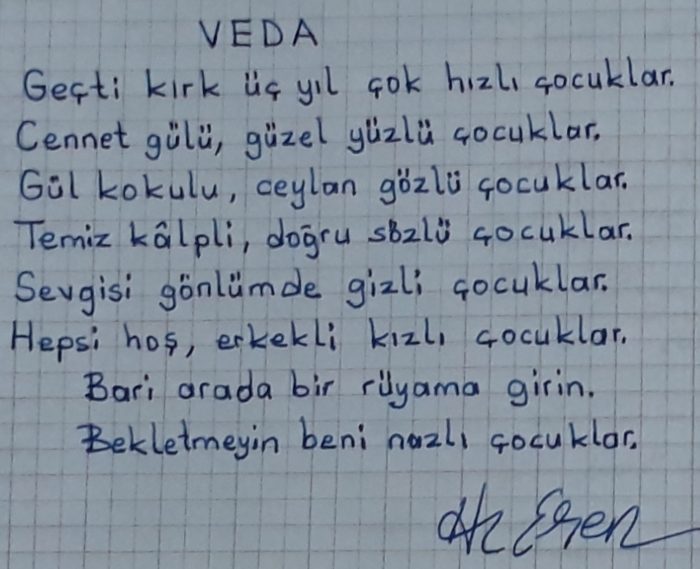 VEDA
Geçti kırk üç yıl çok hızlı çocuklar.
Cennet gülü, güzel yüzlü çocuklar.
Gül kokulu, ceylan gözlü çocuklar.
Temiz kâlpli, doğru sözlü çocuklar.
Sevgisi gönlümde gizli çocuklar.
Hepsi hoş, erkekli kızlı çocuklar.
Bari arada bir rüyama girin.
Bekletmeyin beni nazlı çocuklar.